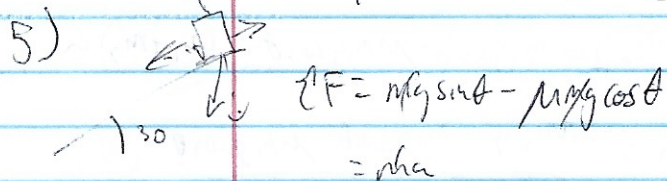 5)
ΣF = mg sinθ - μmg cosθ
30
= ma